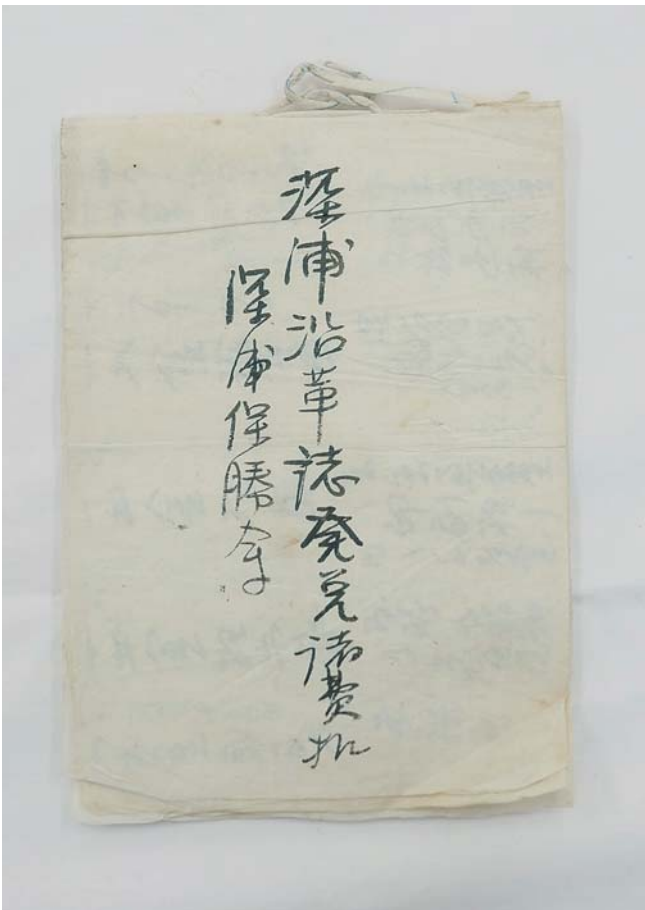 深浦沿革誌発兌諸費扣
深浦保勝会